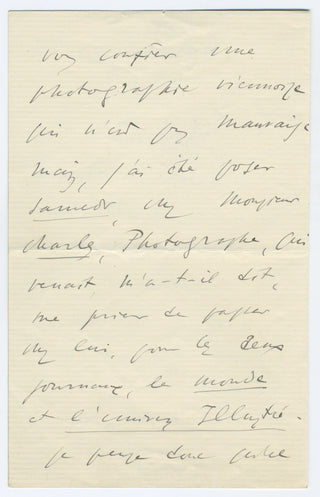 vous confier une
photographie viennoise
qui n'est pas mauvaise
mais, j'ai été poser
samedi, chez Monsieur
charles, Photographe, qui
venait, m'a-t-il dit,
me prier de passer
chez lui, pour les deux
journaux, le monde
et l'univers Illustré.
je pense donc